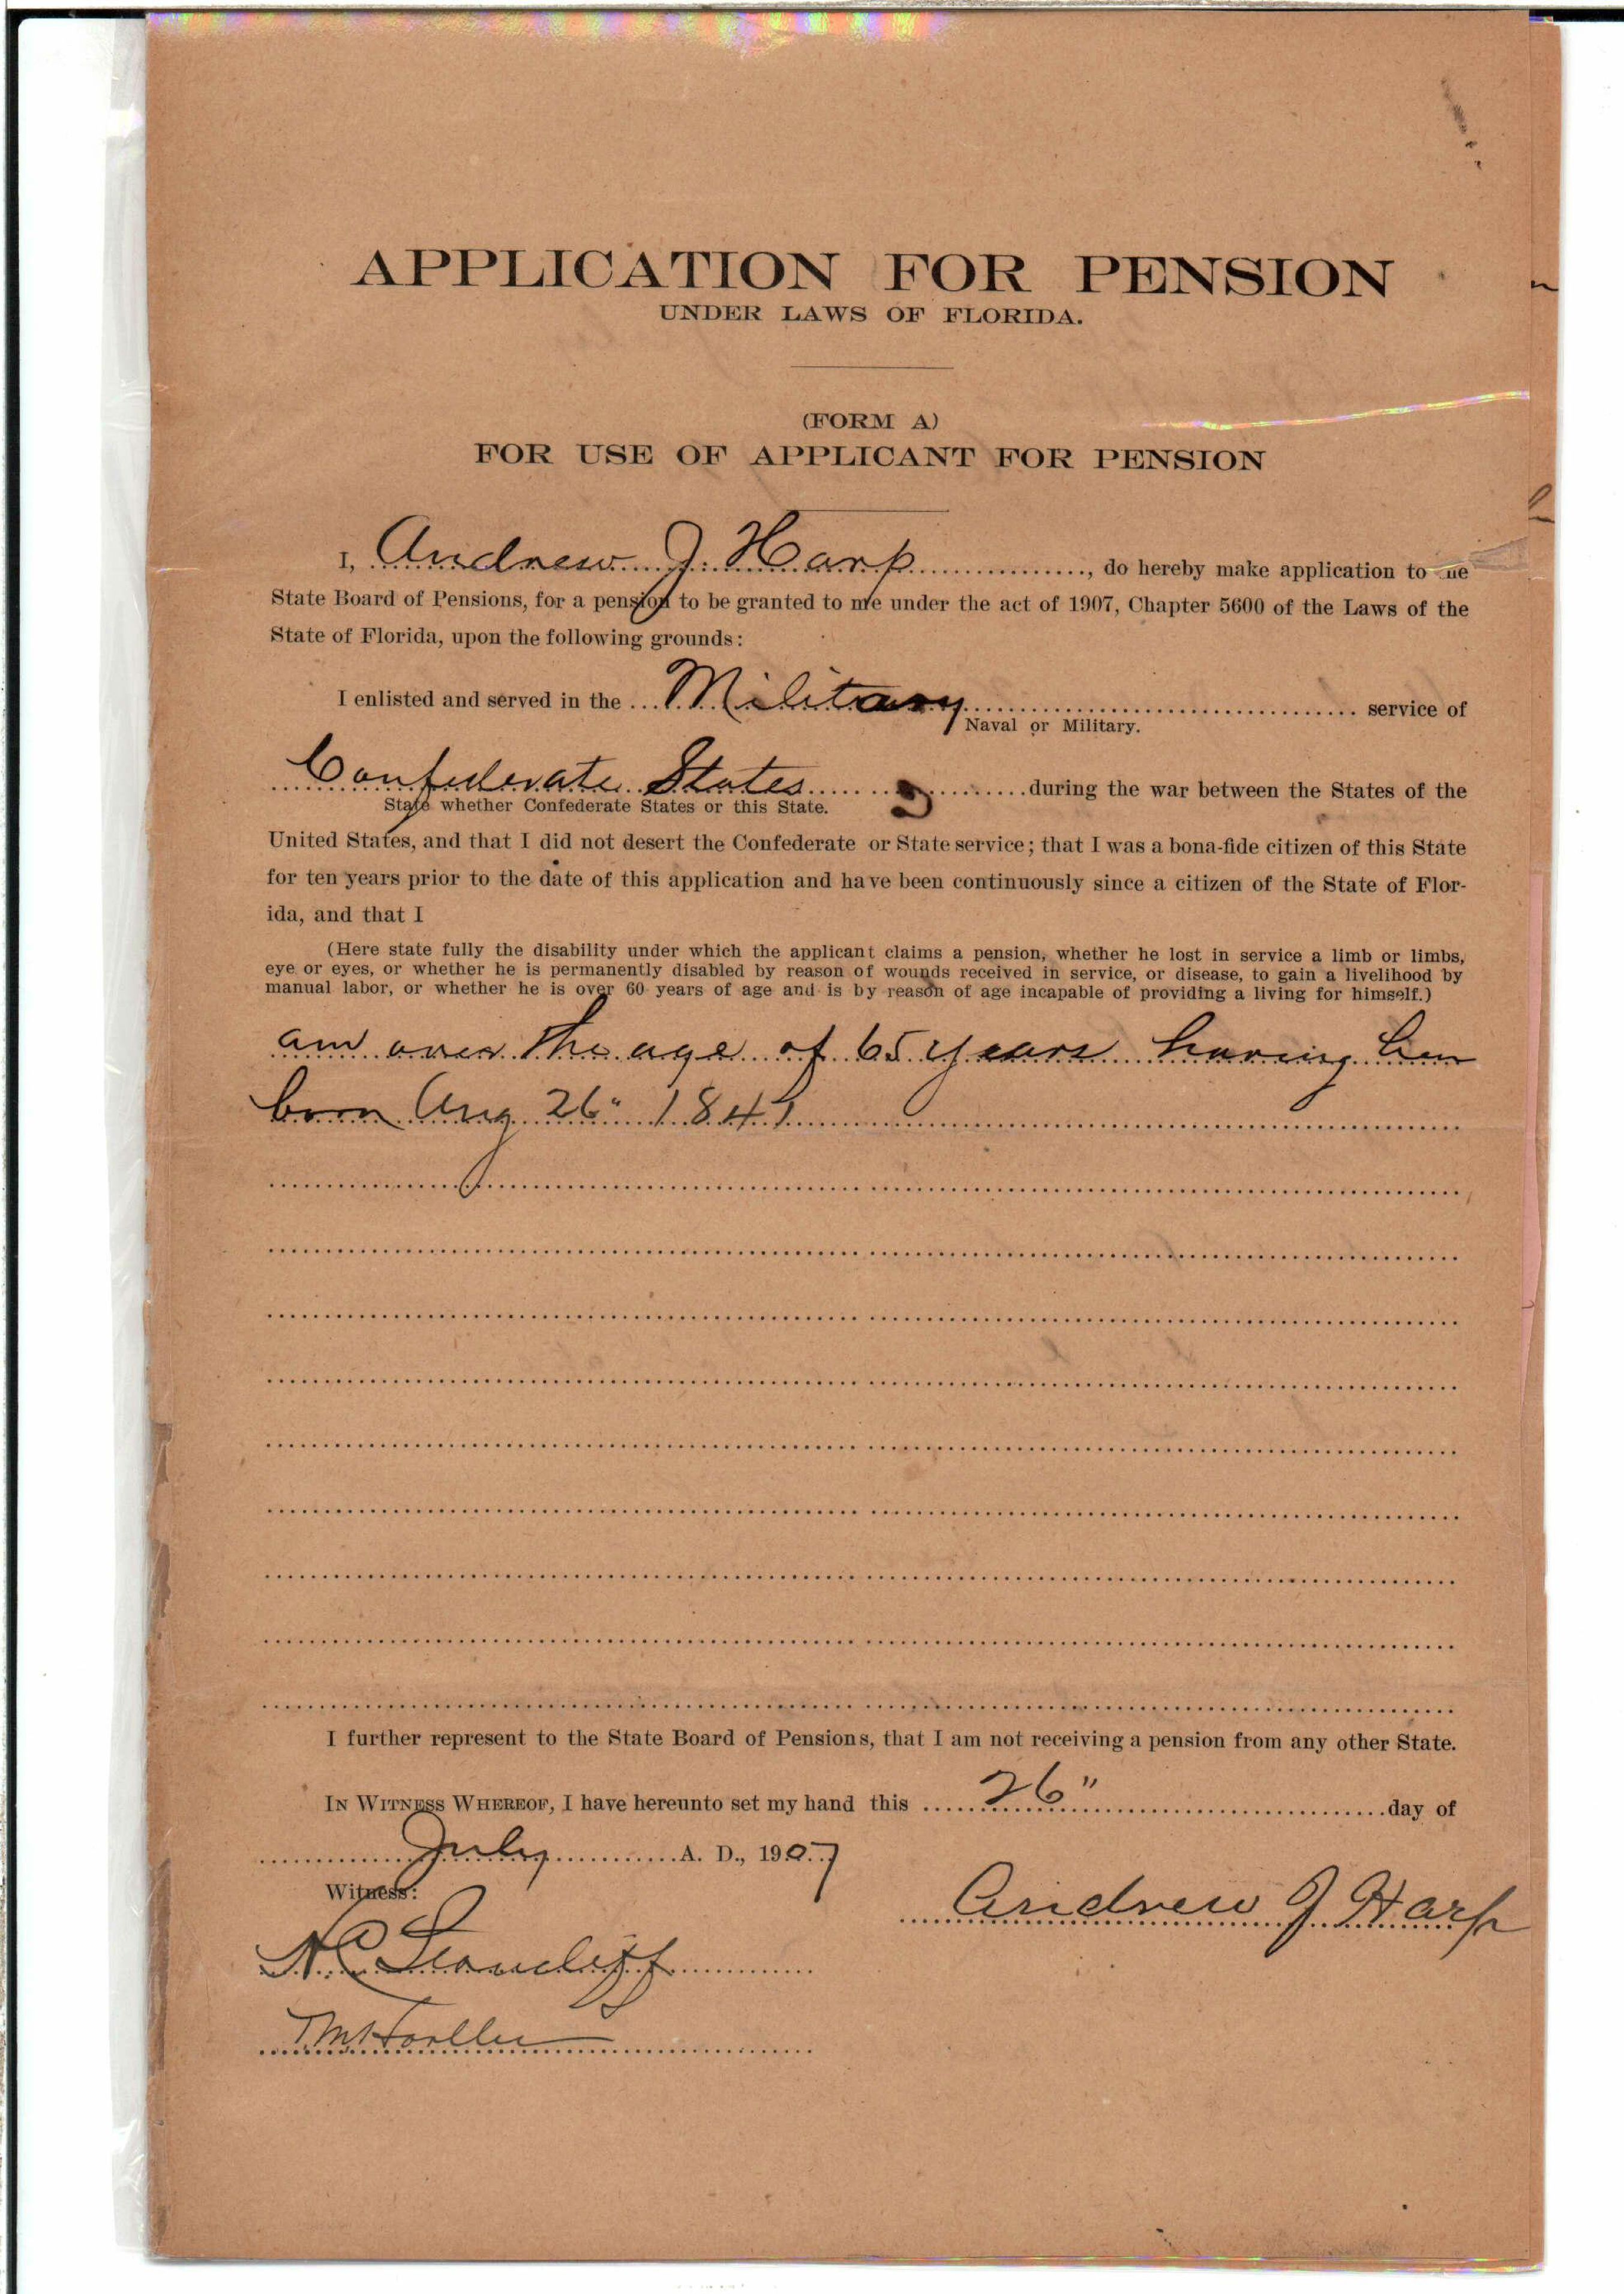 APPLICATION FOR PENSION
UNDER LAWS OF FLORIDA.
(FORM A)
FOR USE OF APPLICANT FOR PENSION
I, Andrew J. Harp, do hereby make application to
State Board of Pensions, for a pension to be granted to me under the act of 1907, Chapter 5600 of the Laws of the
State of Florida, upon the following grounds:
I enlisted and served in the Military service of
Naval or Military.
Confederate States during the war between the States of the
State whether Confederate States or this State.
United States, and that I did not desert the Confederate or State service; that I was a bona-fide citizen of this State
for ten years prior to the date of this application and have been continuously since a citizen of the State of Flor-
ida, and that I
(Here state fully the disability under which the applicant claims a pension, whether he lost in service a limb or limbs,
eye or eyes, or whether he is permanently disabled by reason of wounds received in service, or disease, to gain a livelihood by
manual labor, or whether he is over 60 years of age and is by reason of age incapable of providing a living for himself.)
am over the age of 65 years having
born Aug 26" 1841
I further represent to the State Board of Pensions, that I am not receiving a pension from any other State.
IN WITNESS WHEREOF, I have hereunto set my hand this 26" day of
July A. D., 1907
Witness:
Andrew J Harp